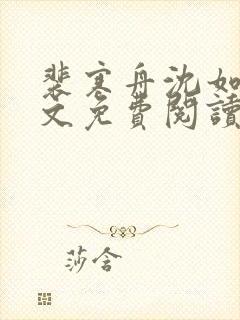 裴寒舟沈如
文免費閱讀
莎含